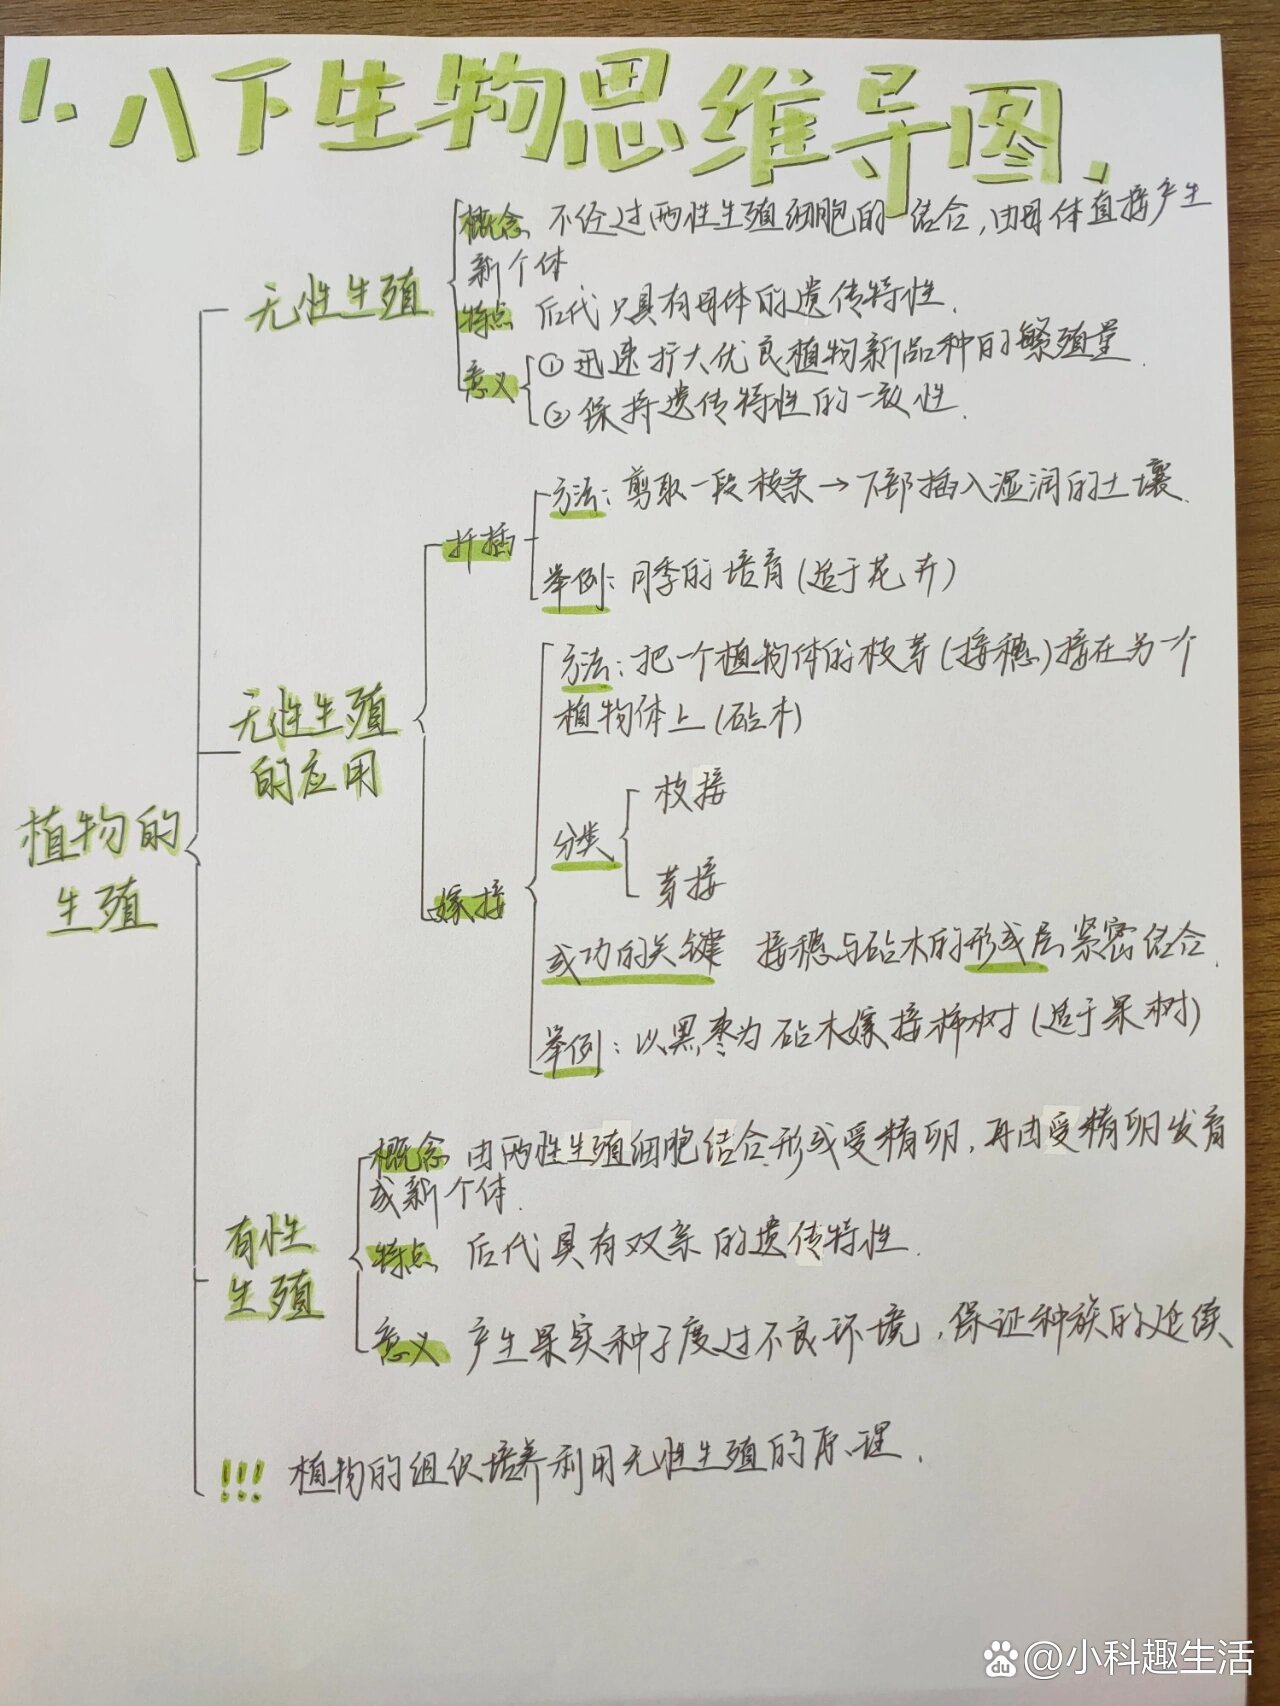 1. 八下生物思维导图.
概念 不经过两性生殖细胞的结合,由母体直接产生
新个体
无性生殖
特点 后代只具有母体的遗传特性.
意义
①迅速扩大优良植物新品种的繁殖量
②保持遗传特性的一致性.
方法:剪取一段枝条→下部插入湿润的土壤.
扦插
举例:月季的培育(适于花卉)
方法:把一个植物体的枝芽(接穗)接在另一个
植物体上(砧木)
无性生殖
的应用
枝接
分类
芽接
嫁接
成功的关键 接穗与砧木的形成层紧密结合.
举例:以黑枣为砧木嫁接柿树(适于果树)
植物的
生殖
概念 由两性生殖细胞结合形成受精卵,再由受精卵发育
成新个体.
有性
生殖
特点 后代具有双亲的遗传特性.
意义 产生果实种子度过不良环境,保证种族的延续
!!! 植物的组织培养利用无性生殖的原理.
du @小科趣生活